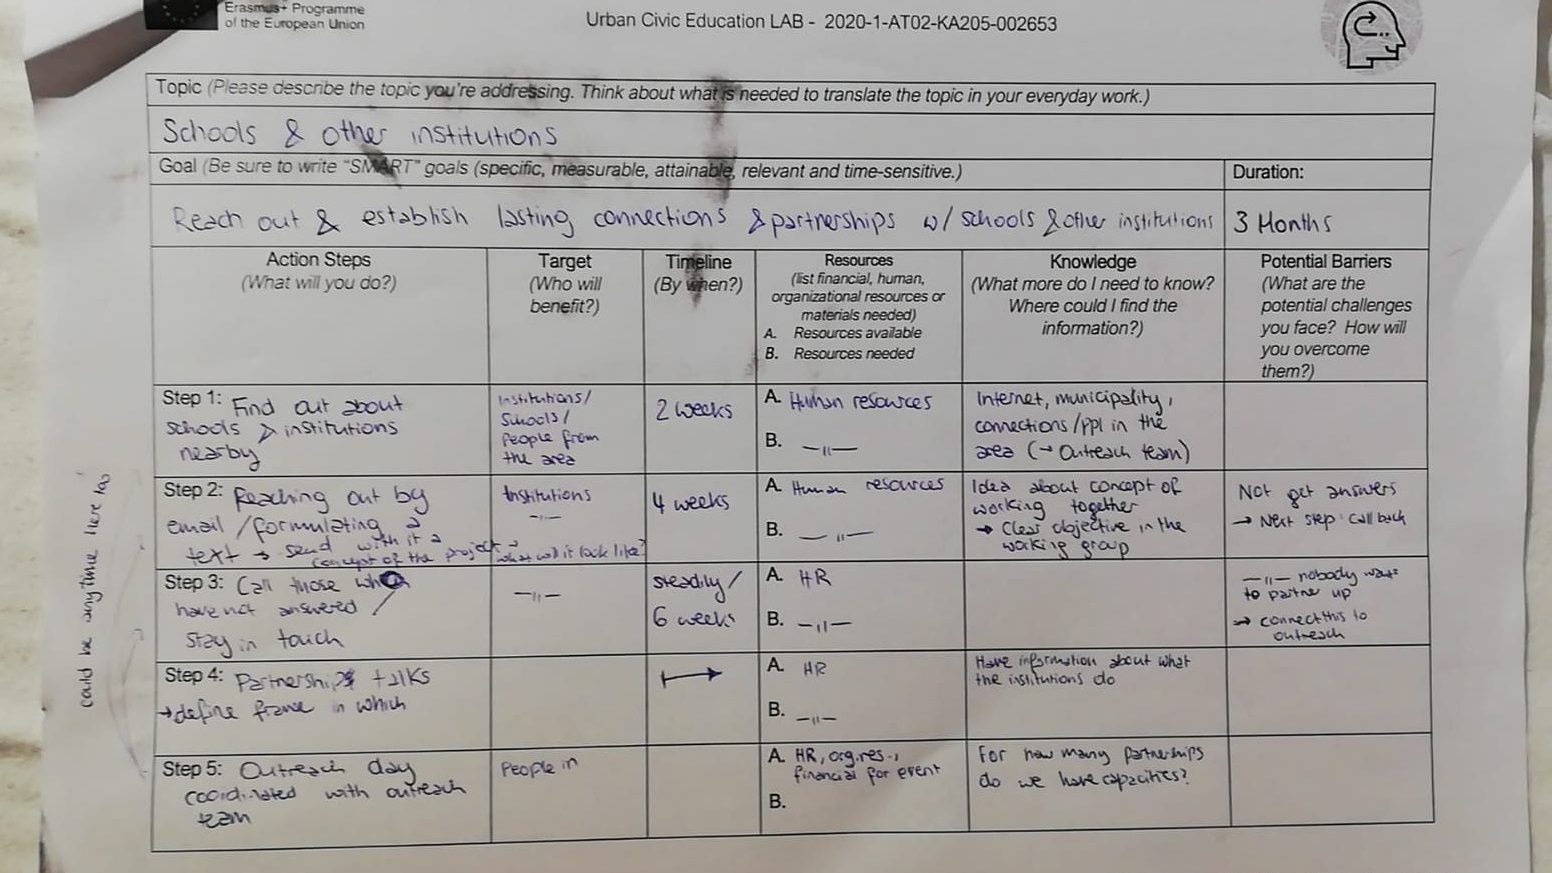 Erasmus+ Programme
of the European Union
Urban Civic Education LAB - 2020-1-AT02-KA205-002653
Topic (Please describe the topic you're addressing. Think about what is needed to translate the topic in your everyday work.)
Schools & other institutions
Goal (Be sure to write "SMART" goals (specific, measurable, attainable, relevant and time-sensitive.)
Duration:
Reach out & establish lasting connections & partnerships w/ schools & other institutions
3 Months
Action Steps
(What will you do?)
Target
(Who will
benefit?)
Timeline
(By when?)
Resources
(list financial, human,
organizational resources or
materials needed)
A. Resources available
B. Resources needed
Knowledge
(What more do I need to know?
Where could I find the
information?)
Potential Barriers
(What are the
potential challenges
you face? How will
you overcome
them?)
Step 1: Find out about
schools & institutions
nearby
Institutions/
Schools/
People from
the area
2 weeks
A. Human resources
B. —"—
Internet, municipality,
connections/ppl in the
area (→ Outreach team)
Step 2: Reaching out by
email/formulating a
text → send with it a
concept of the project → what will it look like?
Institutions
—"—
4 weeks
A. Human resources
B. —"—
Idea about concept of
working together
→ Clear objective in the
working group
Not get answers
→ Next step: call back
Step 3: Call those who
have not answered /
stay in touch
—"—
steadily/
6 weeks
A. HR
B. —"—
—"— nobody wants
to partner up
→ connect this to
outreach
Step 4: Partnership
→ define frame in which
A. HR
B. —"—
Have information about what
the institutions do
Step 5: Outreach day
coordinated with outreach
team
People in
A. HR, org.res.,
financial for event
B.
For how many partnerships
do we have capacities?
could be anytime here too